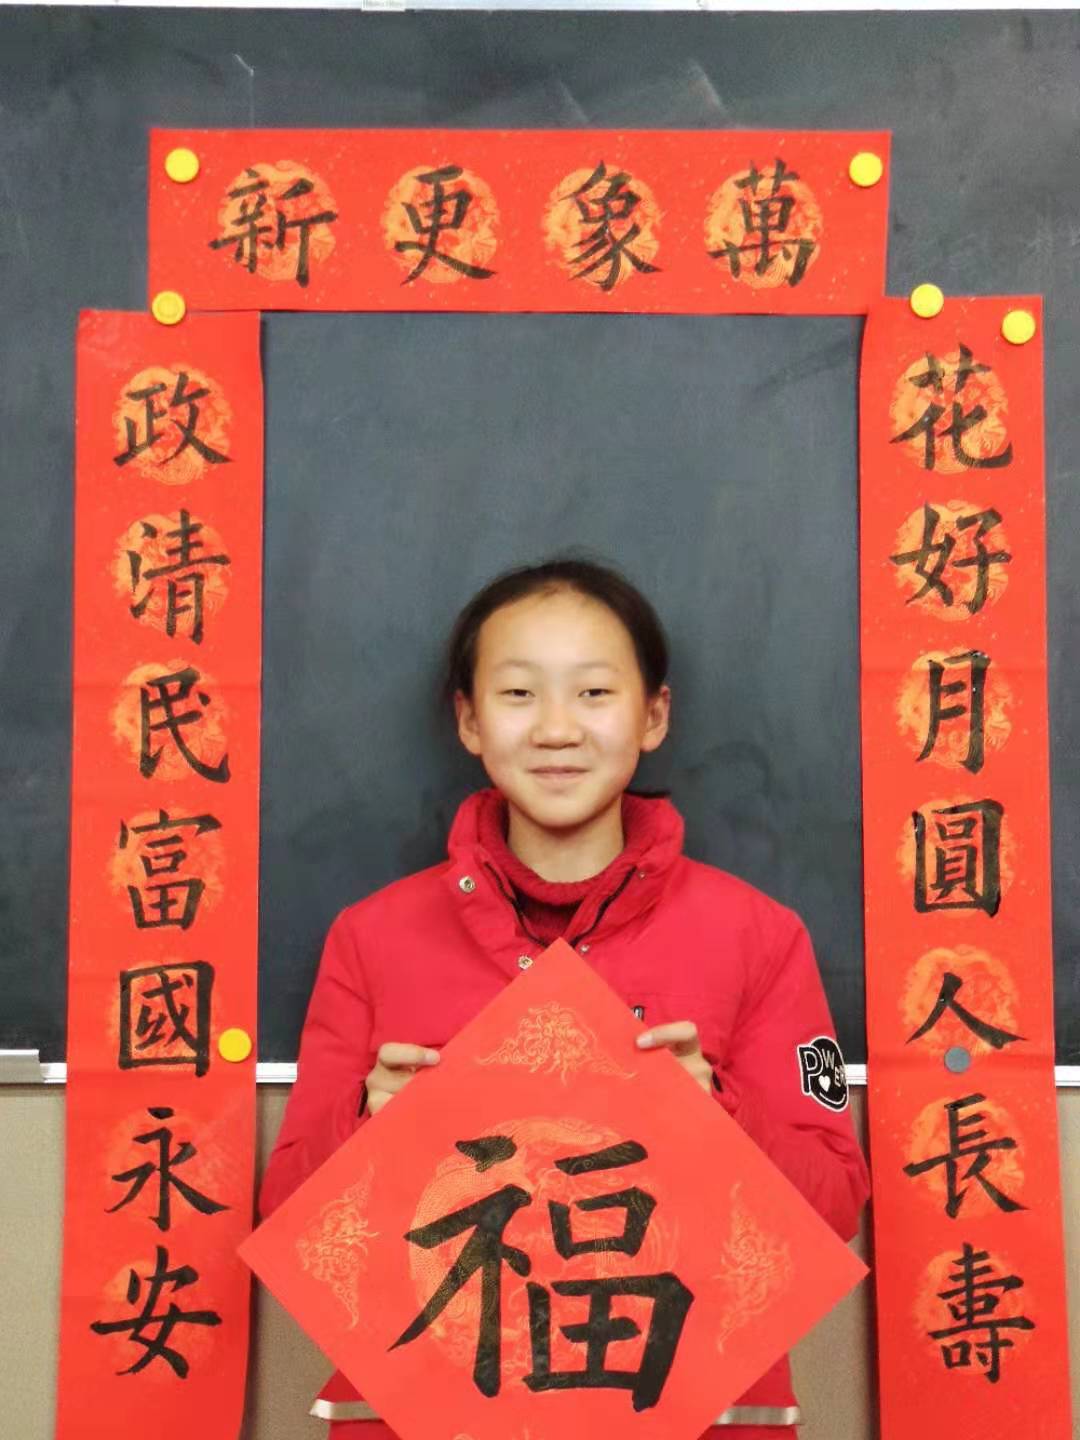 萬象更新
花好月圓人長壽
政清民富國永安
福